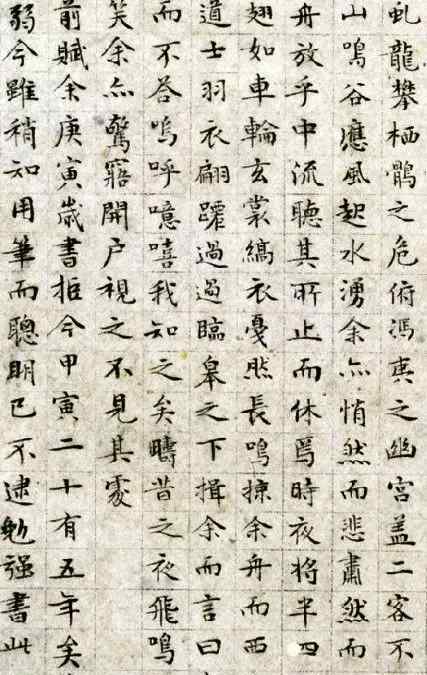 虬龍攀栖鶻之危俯馮夷之幽宮盖二客不
山鳴谷應風起水湧余亦悄然而悲肅然而
舟放乎中流聽其所止而休焉時夜將半四
翅如車輪玄裳縞衣戛然長鳴掠余舟而西
道士羽衣翩躚過過臨皋之下揖余而言曰
而不答嗚呼噫嘻我知之矣疇昔之夜飛鳴
笑余亦驚寤開户視之不見其處
前賦余庚寅歲書拒今甲寅二十有五年矣
弱今雖稍知用筆而聰明已不逮勉强書此